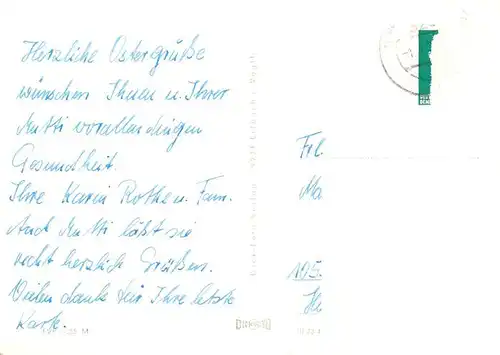 Herzliche Ostergrüße
wünschen Ihnen u. Ihrer
Mutti vorallendingen
Gesundheit.
Ihre Karin Rothe u. Fam.
Auch Mutti läßt sie
recht herzlich Grüßen.
Vielen dank für Ihre letzte
Karte.
Frl.
Ma
105